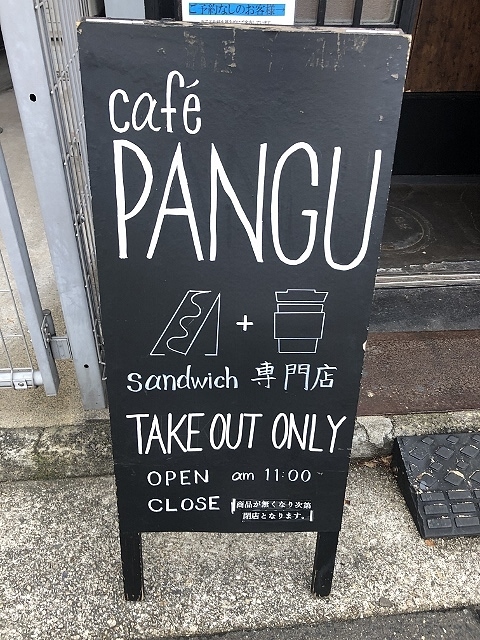 ご予約なしのお客様
café
PANGU
+
sandwich 専門店
TAKE OUT ONLY
OPEN am 11:00
CLOSE 商品が無くなり次第
閉店となります。